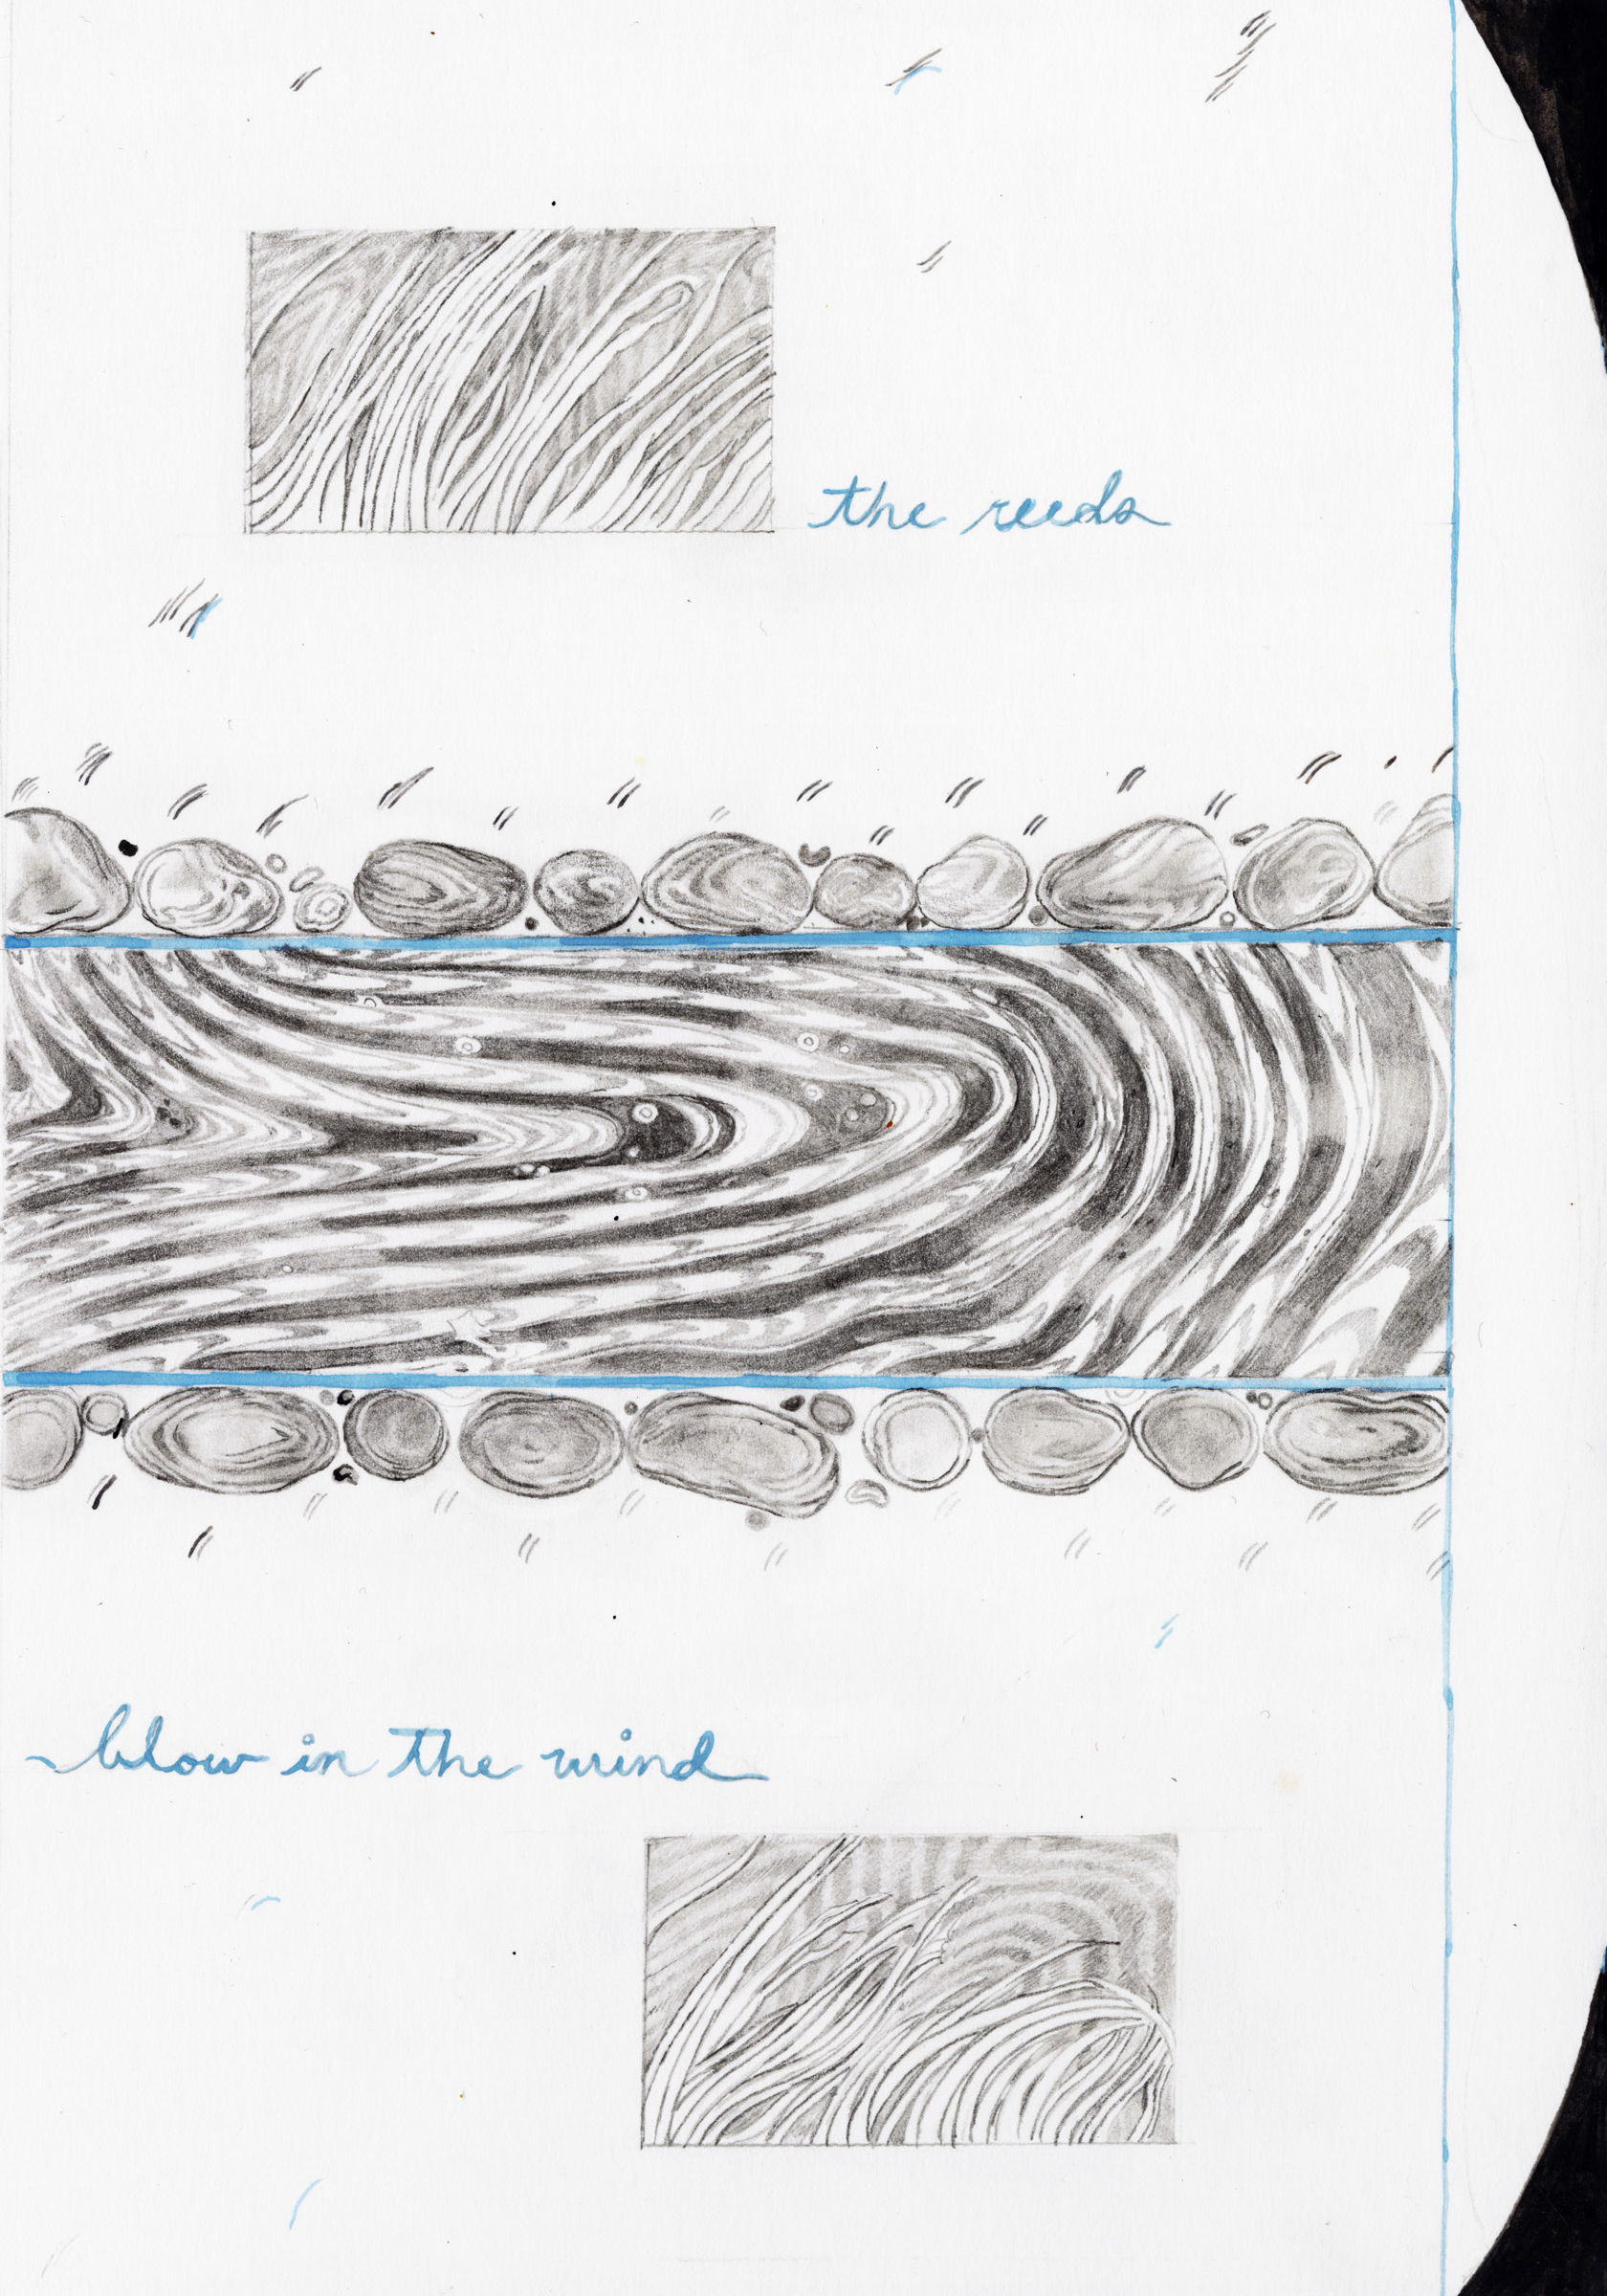 the reeds
blow in the wind